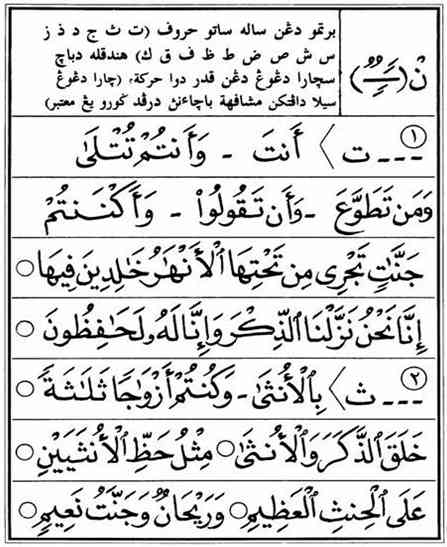 نْ (ــًــٍــٌ)
برتمو دڠن ساله ساتو حروف (ت ث ج د ذ ز
س ش ص ض ط ظ ف ق ك) هندقله دباچ
سچارا دڠوڠ دڠن قدر دوا حركة، (چارا دڠوڠ
سيلا داڤتكن مشافهة باچاءنڽ درڤد ڬورو يڠ معتبر)
١ ــ ـ ـ ت 〉 أَنتَ - وَأَنتُمْ تُتْلَىٰ
وَمَن تَطَوَّعَ - وَأَن تَقُولُوا۟ - وَأَكْنَنتُمْ
جَنَّـٰتٍ تَجْرِى مِن تَحْتِهَا ٱلْأَنْهَـٰرُ خَـٰلِدِينَ فِيهَا ○
إِنَّا نَحْنُ نَزَّلْنَا ٱلذِّكْرَ وَإِنَّا لَهُۥ لَحَـٰفِظُونَ ○
٢ ــ ـ ـ ث 〉 بِٱلْأُنثَىٰ - وَكُنتُمْ أَزْوَٰجًا ثَلَـٰثَةً ○
خَلَقَ ٱلذَّكَرَ وَٱلْأُنثَىٰ ○ مِثْلُ حَظِّ ٱلْأُنثَيَيْنِ ○
عَلَى ٱلْحِنثِ ٱلْعَظِيمِ ○ وَرَيْحَانٌ وَجَنَّتُ نَعِيمٍ ○